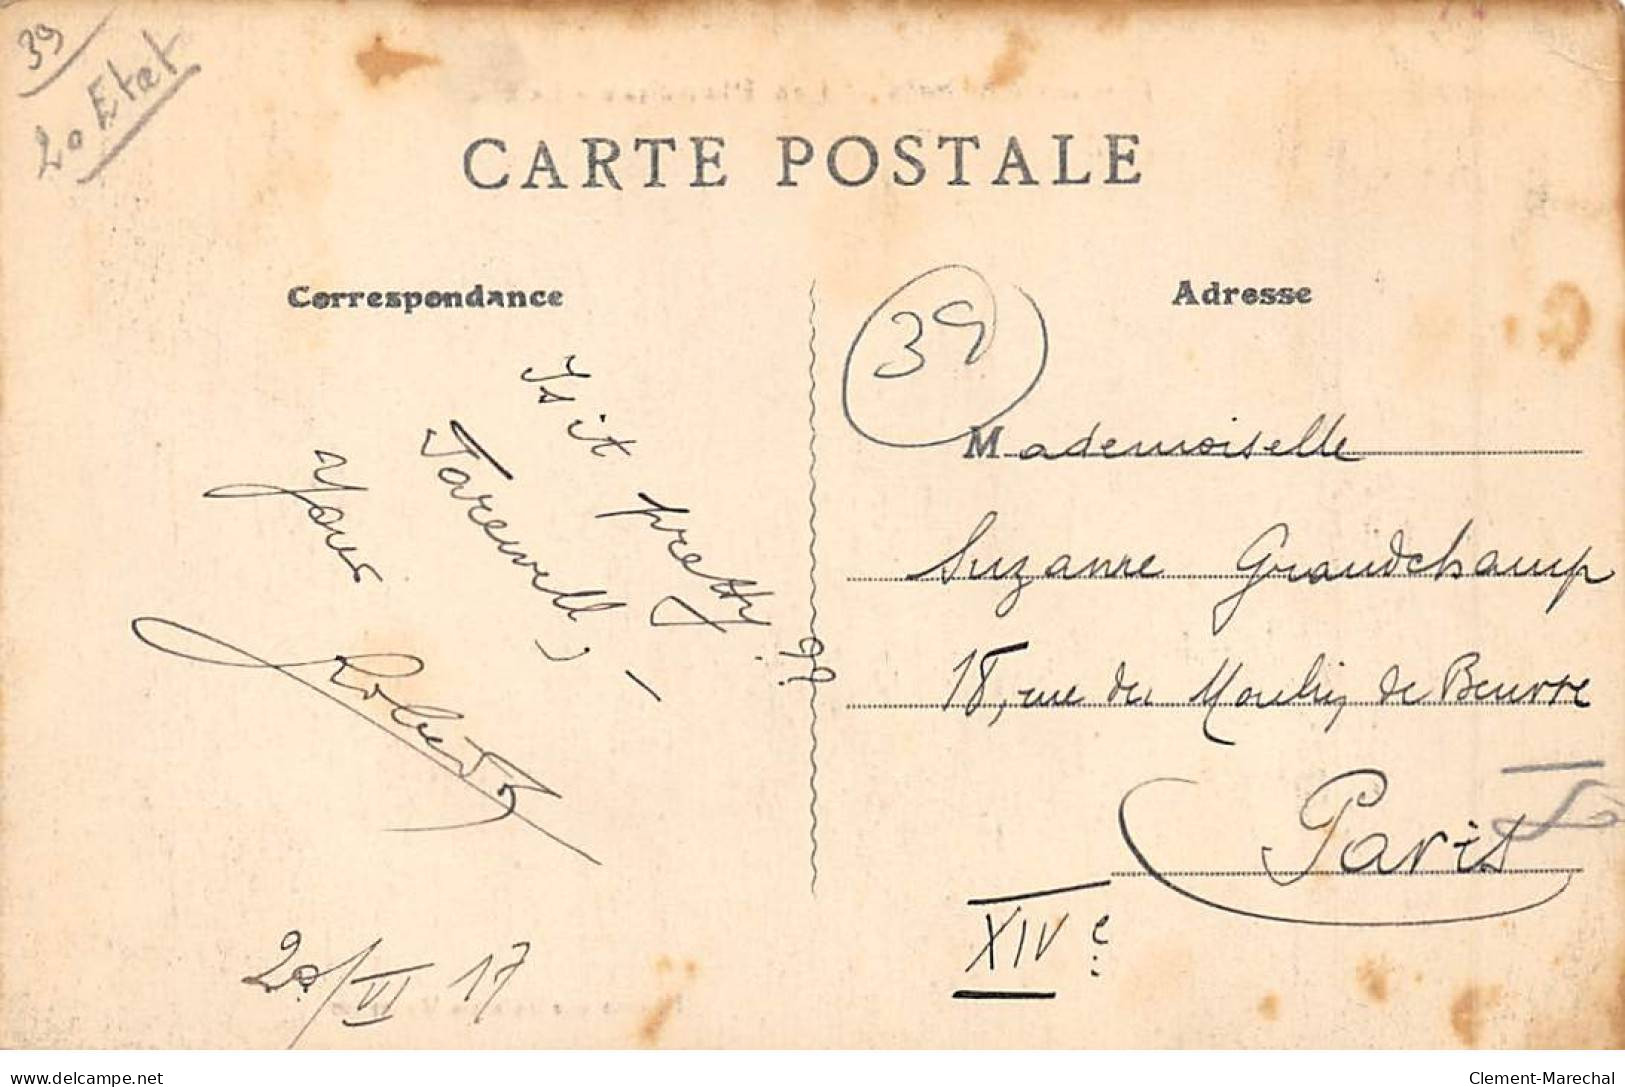 39
20 Etat
CARTE POSTALE
Correspondance
Adresse
39
Is it pretty ??
Farewell, -
Your
Robert
20/VI 17
Mademoiselle
Suzanne Grandchamp
18, rue du Moulin de Beurre
Paris
XIVe
Clement-Marechal
www.delcampe.net